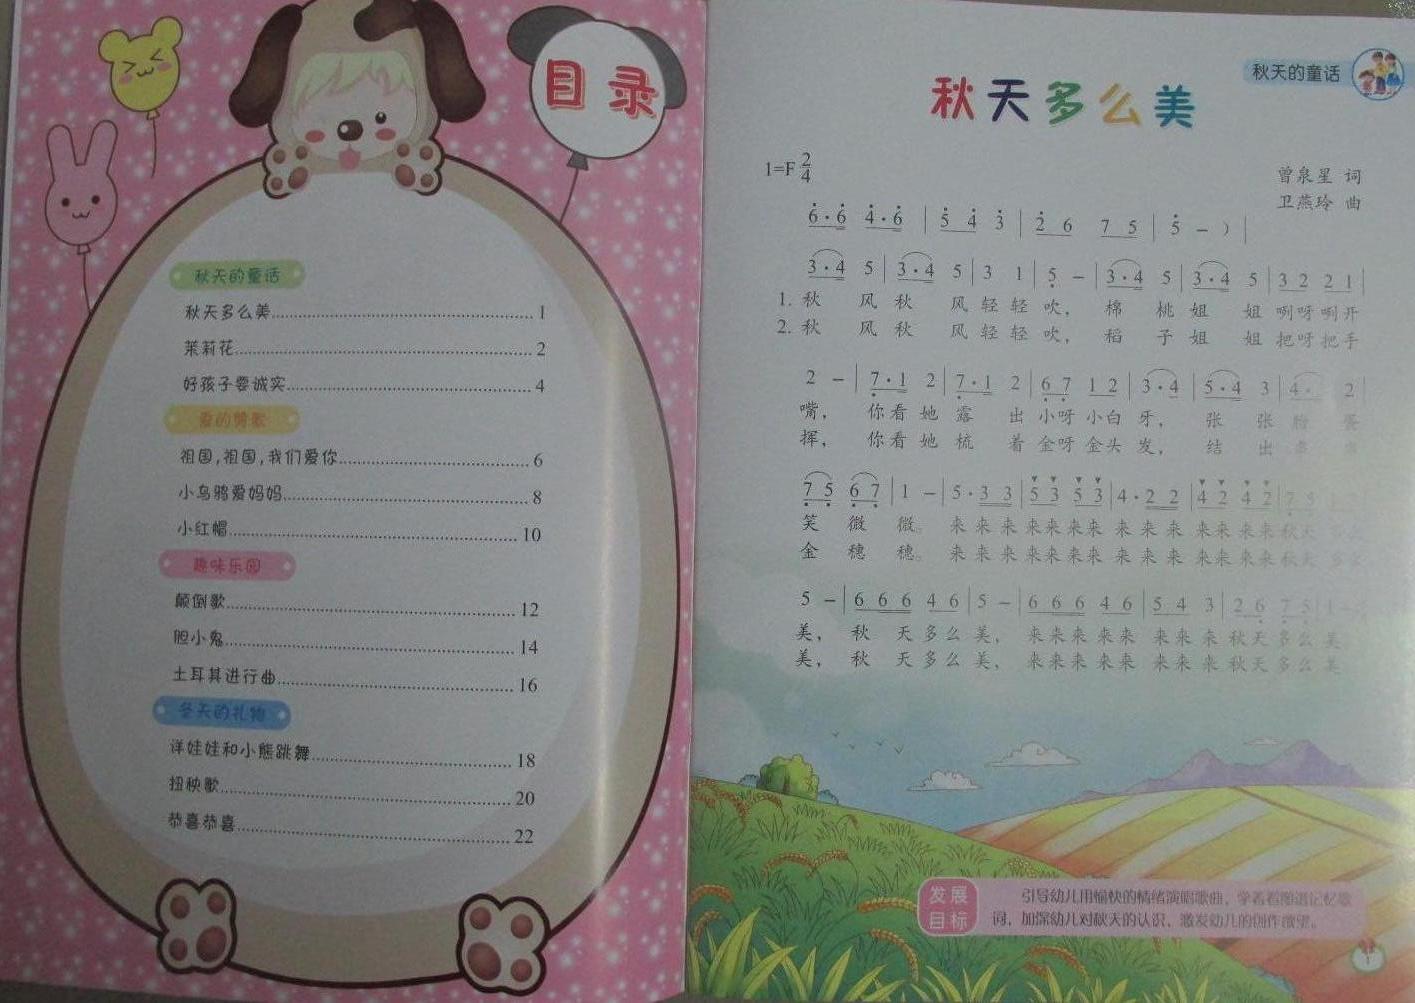 目录
秋天的童话
秋天多么美 1
茉莉花 2
好孩子要诚实 4
爱的赞歌
祖国,祖国,我们爱你 6
小乌鸦爱妈妈 8
小红帽 10
趣味乐园
颠倒歌 12
胆小鬼 14
土耳其进行曲 16
冬天的礼物
洋娃娃和小熊跳舞 18
扭秧歌 20
恭喜恭喜 22
秋天的童话
秋天多么美
1=F 2/4
曾泉星 词
卫燕玲 曲
6·6 4·6 | 5 4 3 | 2 6 7 5 | 5 - ) |
3·4 5 | 3·4 5 | 3 1 | 5 - | 3·4 5 | 3·4 5 | 3 2 2 1 |
1. 秋 风 秋 风 轻 轻 吹, 棉 桃 姐 姐 咧呀咧开
2. 秋 风 秋 风 轻 轻 吹, 稻 子 姐 姐 把呀把手
2 - | 7·1 2 | 7·1 2 | 6 7 1 2 | 3·4 | 5·4 3 | 4· 2 |
嘴, 你看 她 露 出 小呀 小白 牙, 张 张 脸 蛋
挥, 你看 她 梳 着 金呀 金头 发, 结 出
7 5 6 7 | 1 - | 5·3 3 | 5 3 5 3 | 4·2 2 | 4 2 4 2 | 7 5
笑 微 微。 来 来 来 来来来来 来 来 来 来来来来 秋天
金 穗 穗。 来 来 来 来来来来 来 来 来 来来来来 秋天 多么
5 - | 6 6 6 4 6 | 5 - | 6 6 6 4 6 | 5 4 3 | 2 6 7 5 | 1 -
美, 秋 天多么 美, 来来来 来来 来来 来 秋天 多么 美
美, 秋 天多么 美, 来来来 来来 来来 来 秋天 多么 美
发展目标
引导幼儿用愉快的情绪演唱歌曲,学着看图谱记忆歌
词,加深幼儿对秋天的认识,激发幼儿的创作欲望。
1